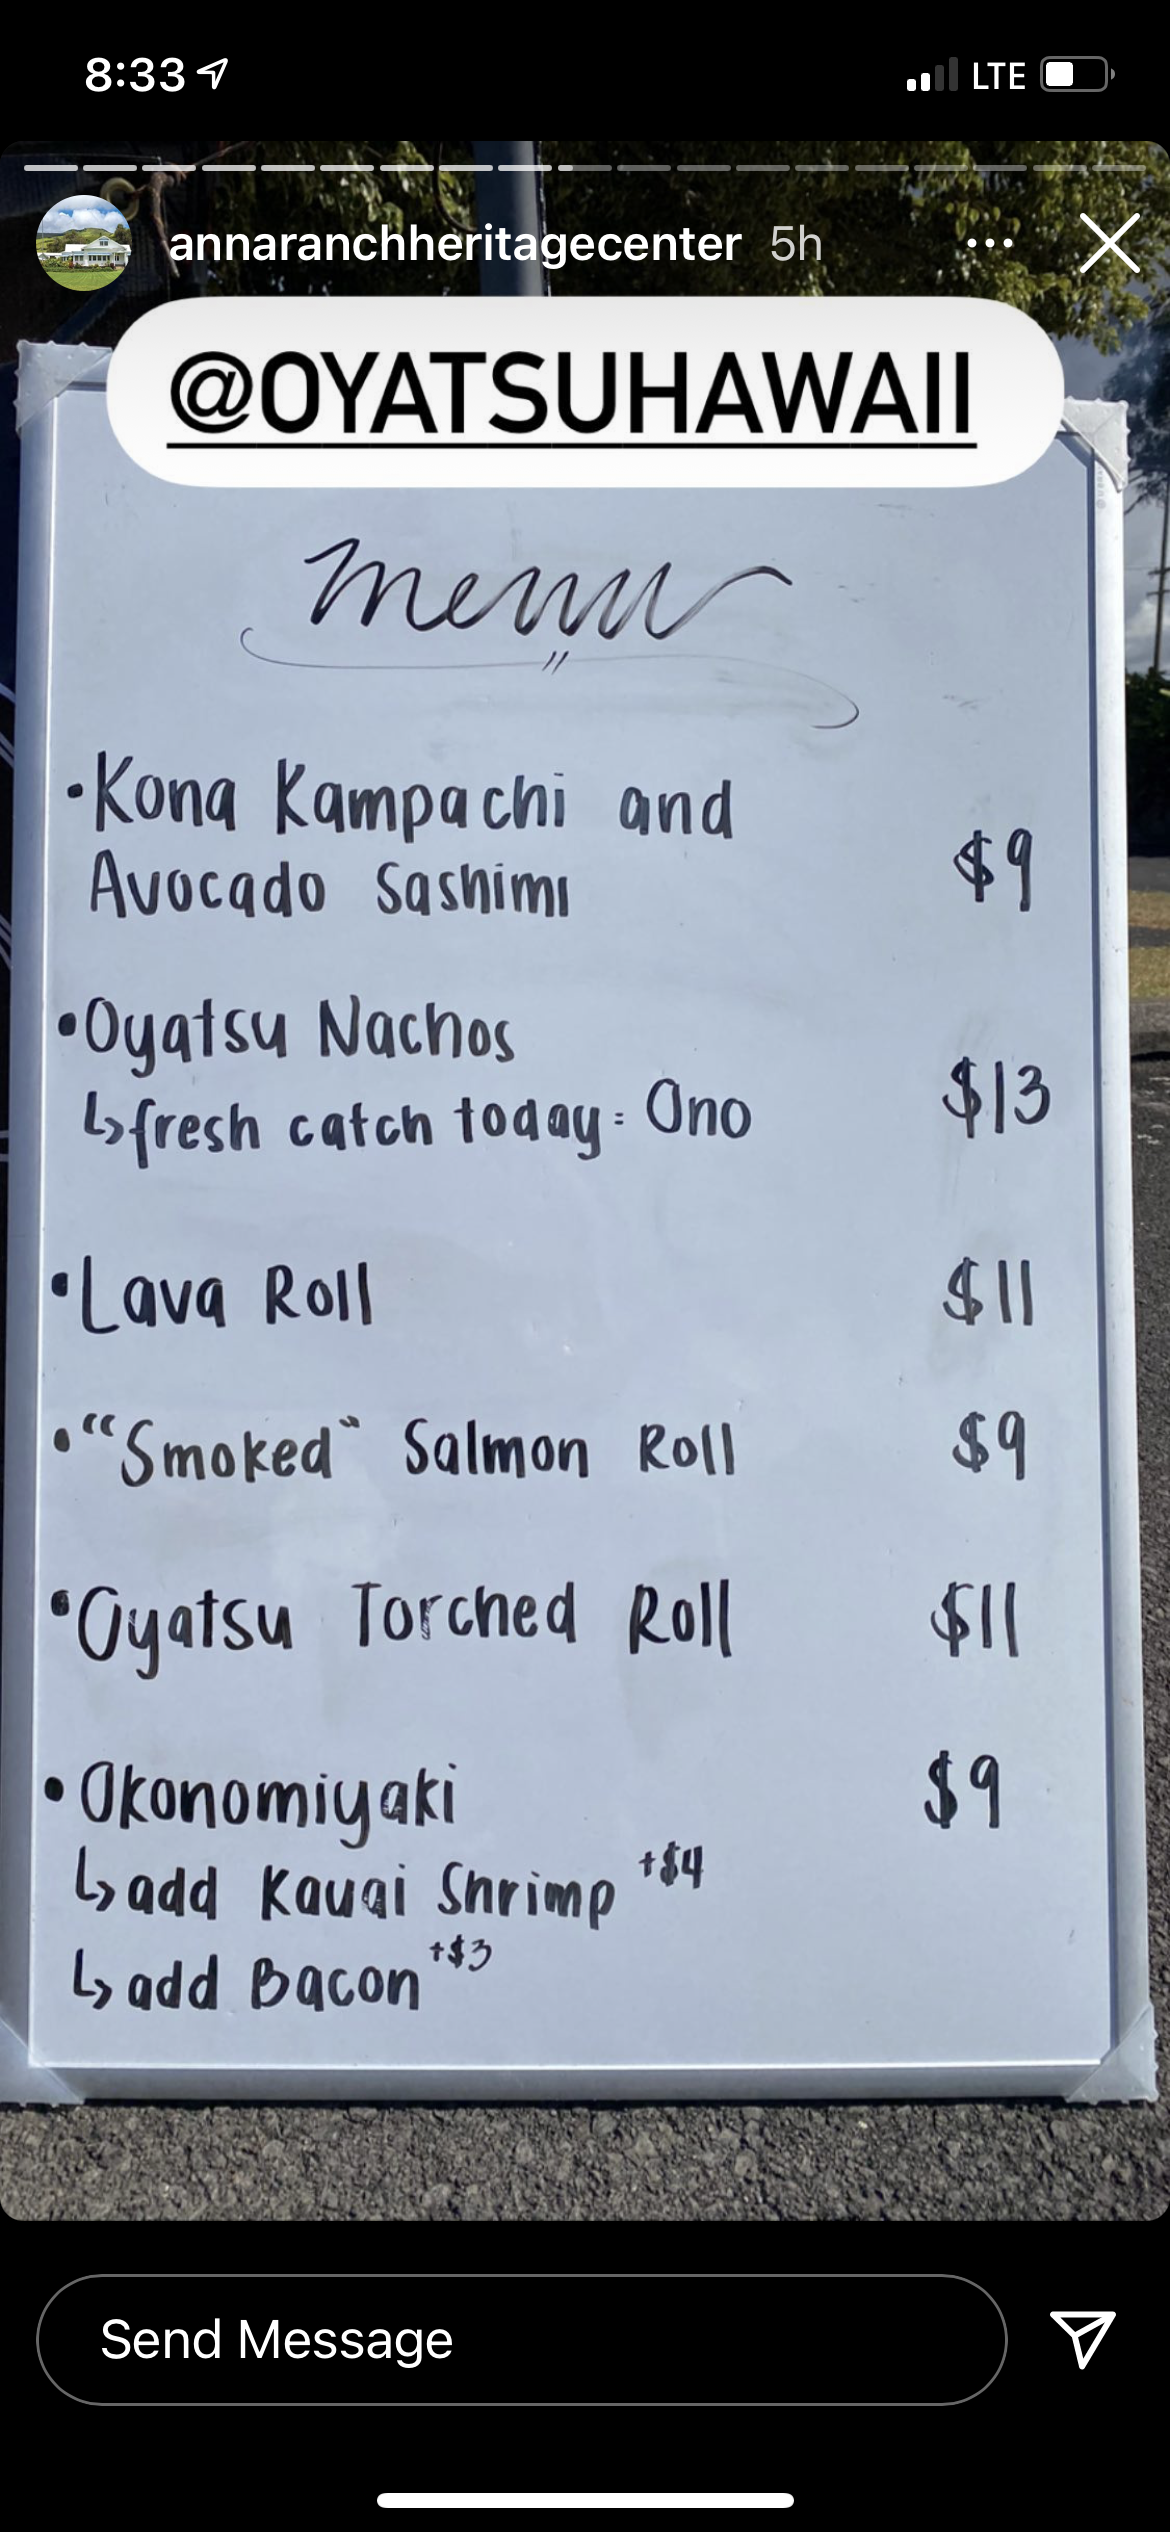 8:33
LTE
annaranchheritagecenter 5h
@OYATSUHAWAII
menu
•Kona Kampachi and
Avocado Sashimi $9
•Oyatsu Nachos
↳fresh catch today: Ono $13
•Lava Roll $11
•"Smoked" Salmon Roll $9
•Oyatsu Torched Roll $11
•Okonomiyaki $9
↳add Kauai Shrimp +$4
↳add Bacon +$3
Send Message